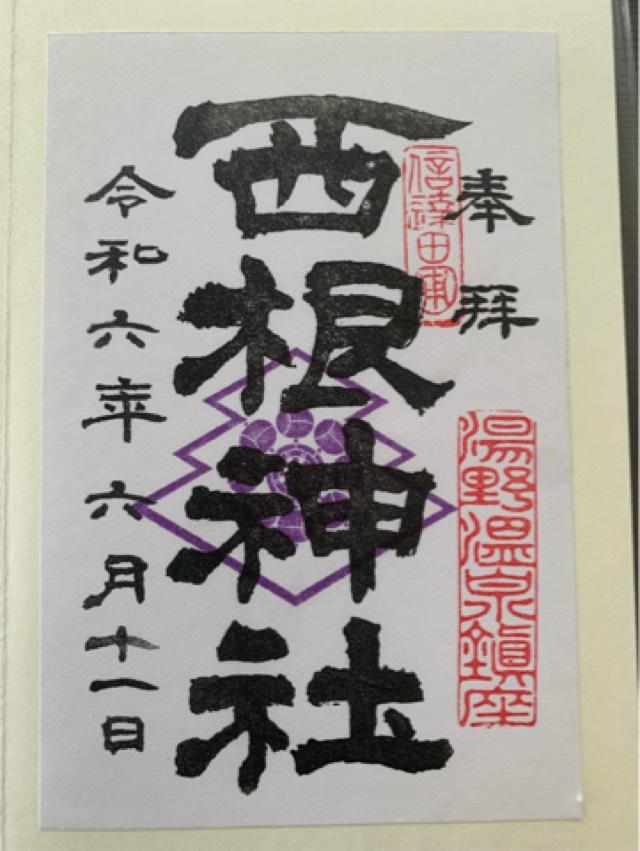 奉拜
信達田東
湯野温泉鎮座
西根神社
令和六年六月十一日